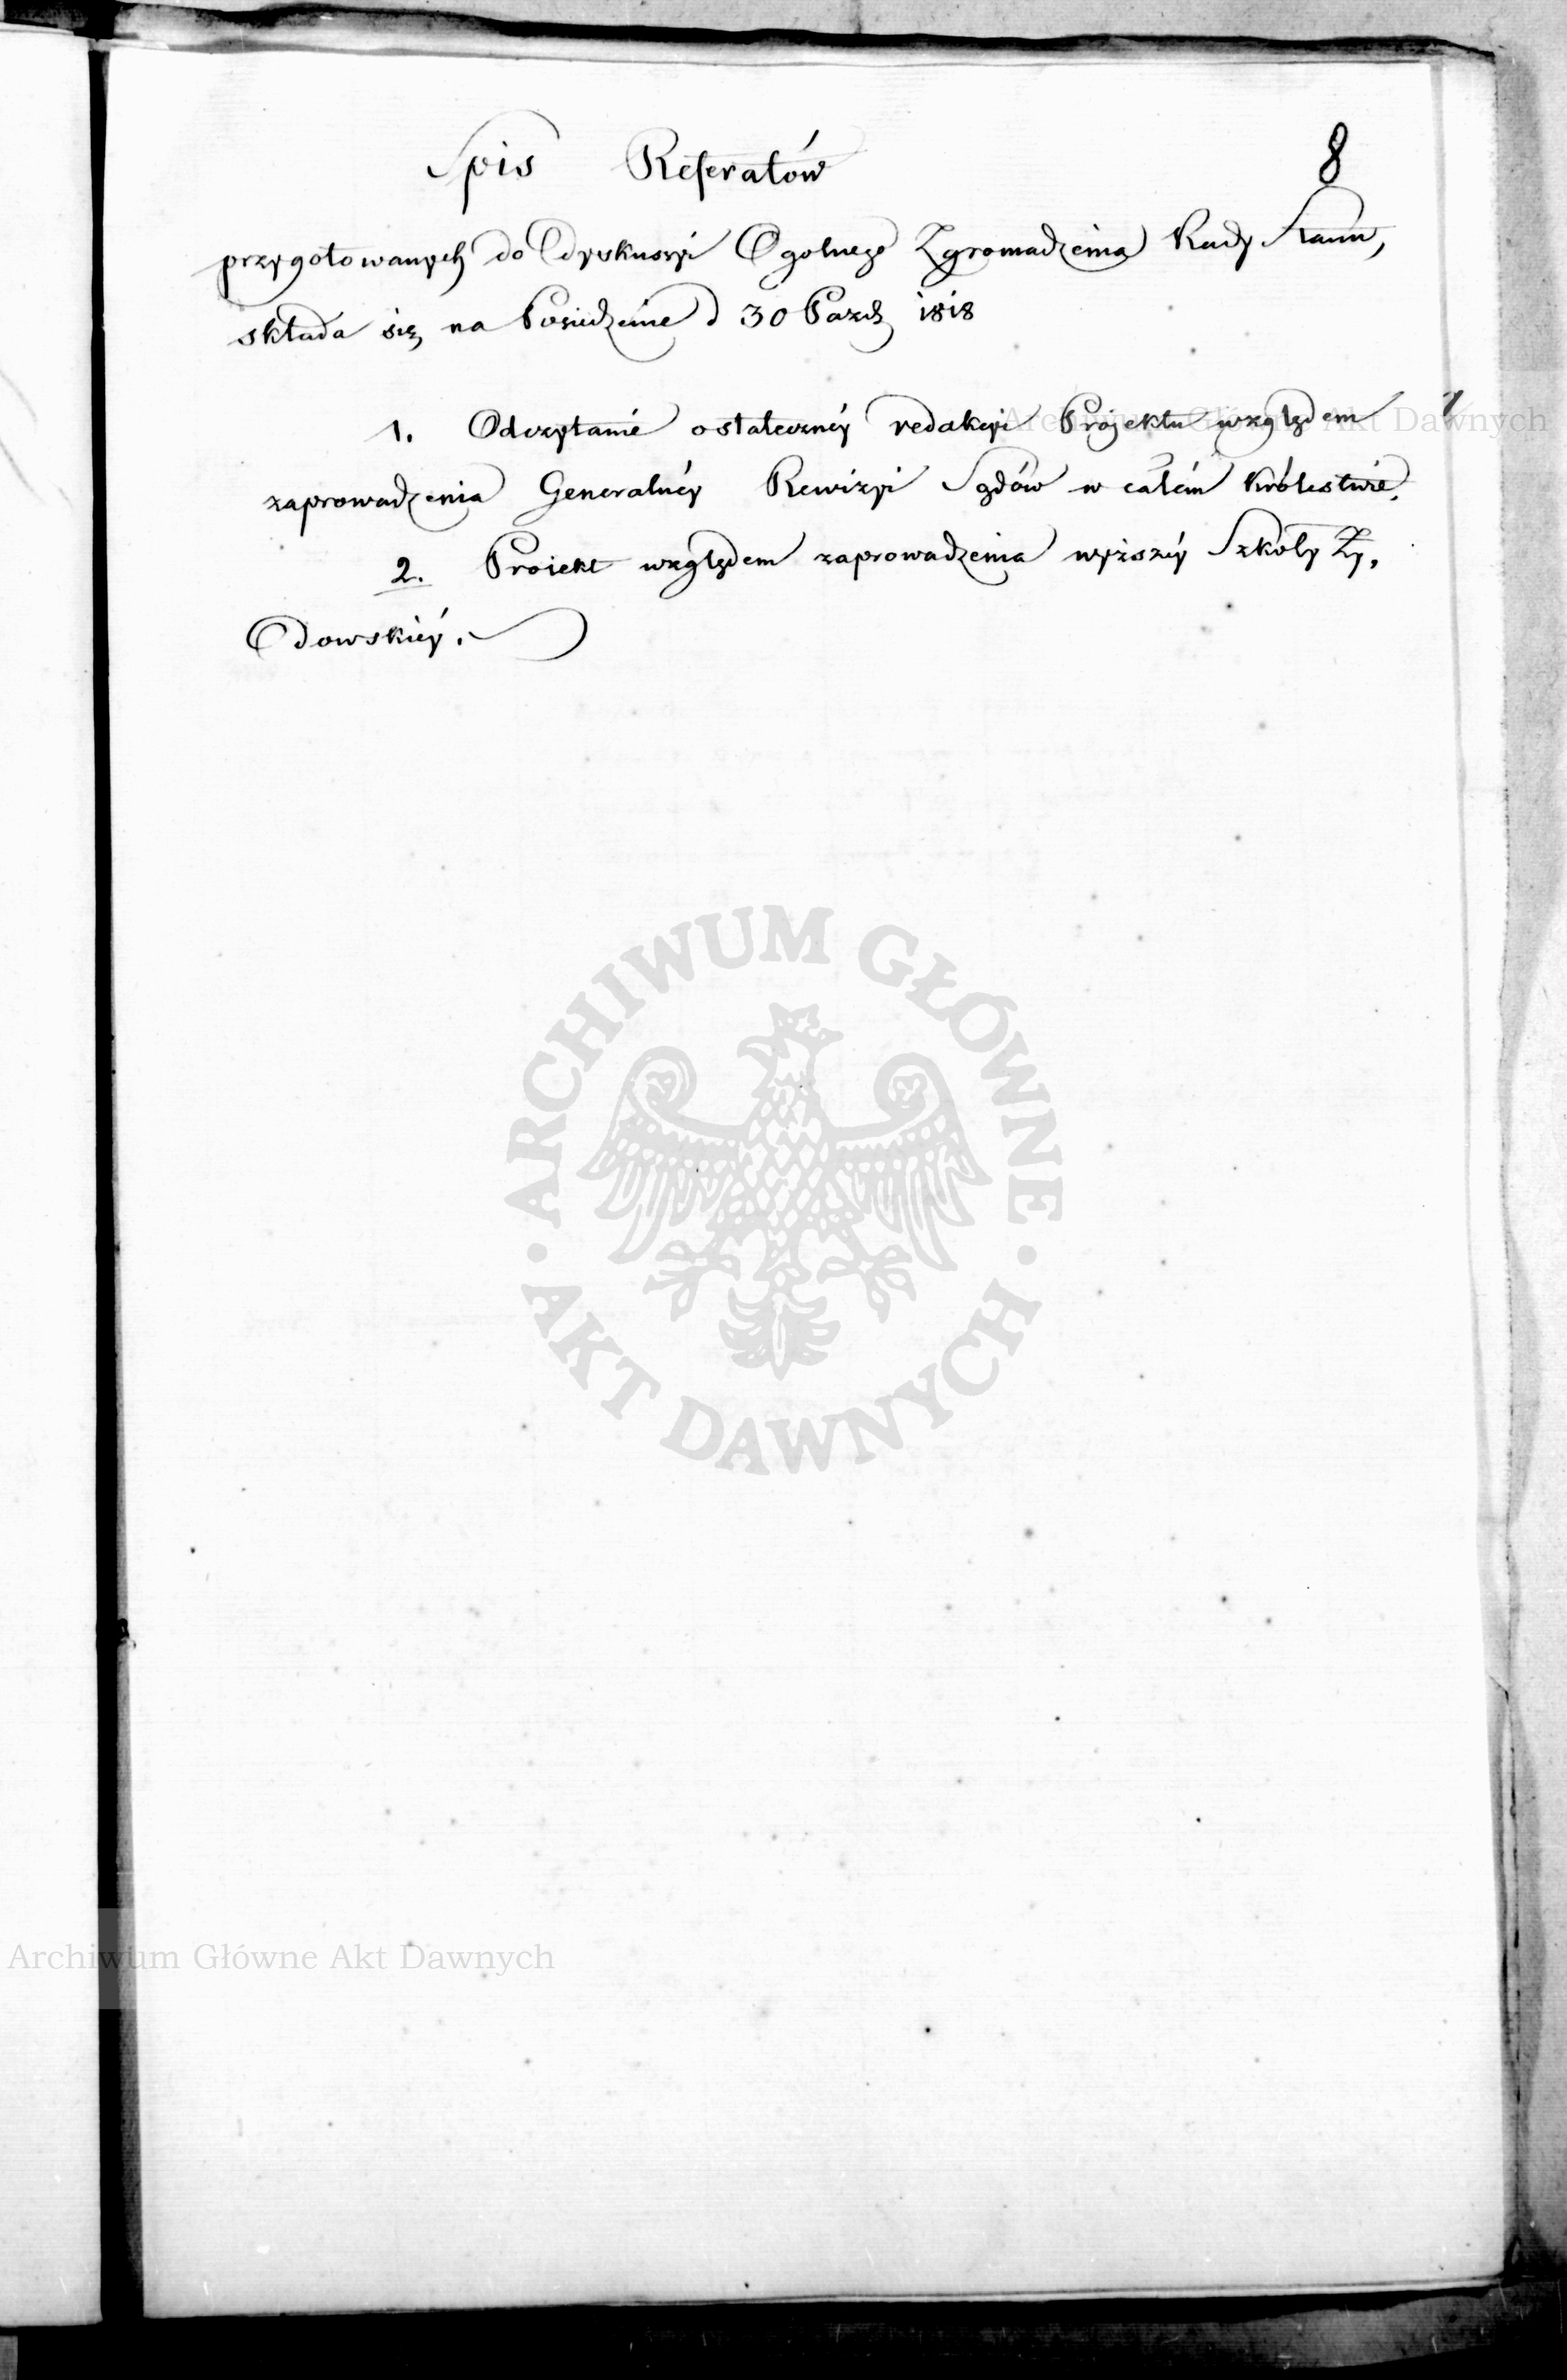 8
Spis Referatów
przygotowanych do dyskussyi Ogolnego Zgromadzenia Rady Stanu,
składa się na Posiedzenie d 30 Pazdz 1818
1. Odczytanie ostateczney redakcyi Projektu względem
zaprowadzenia Generalnéy Rewizyi Sądów w całém Królestwie.
2. Proiekt względem zaprowadzenia wyższéy Szkoły Ży,
dowskiéy.
ARCHIWUM GŁÓWNE
AKT DAWNYCH
Archiwum Główne Akt Dawnych
Archiwum Główne Akt Dawnych